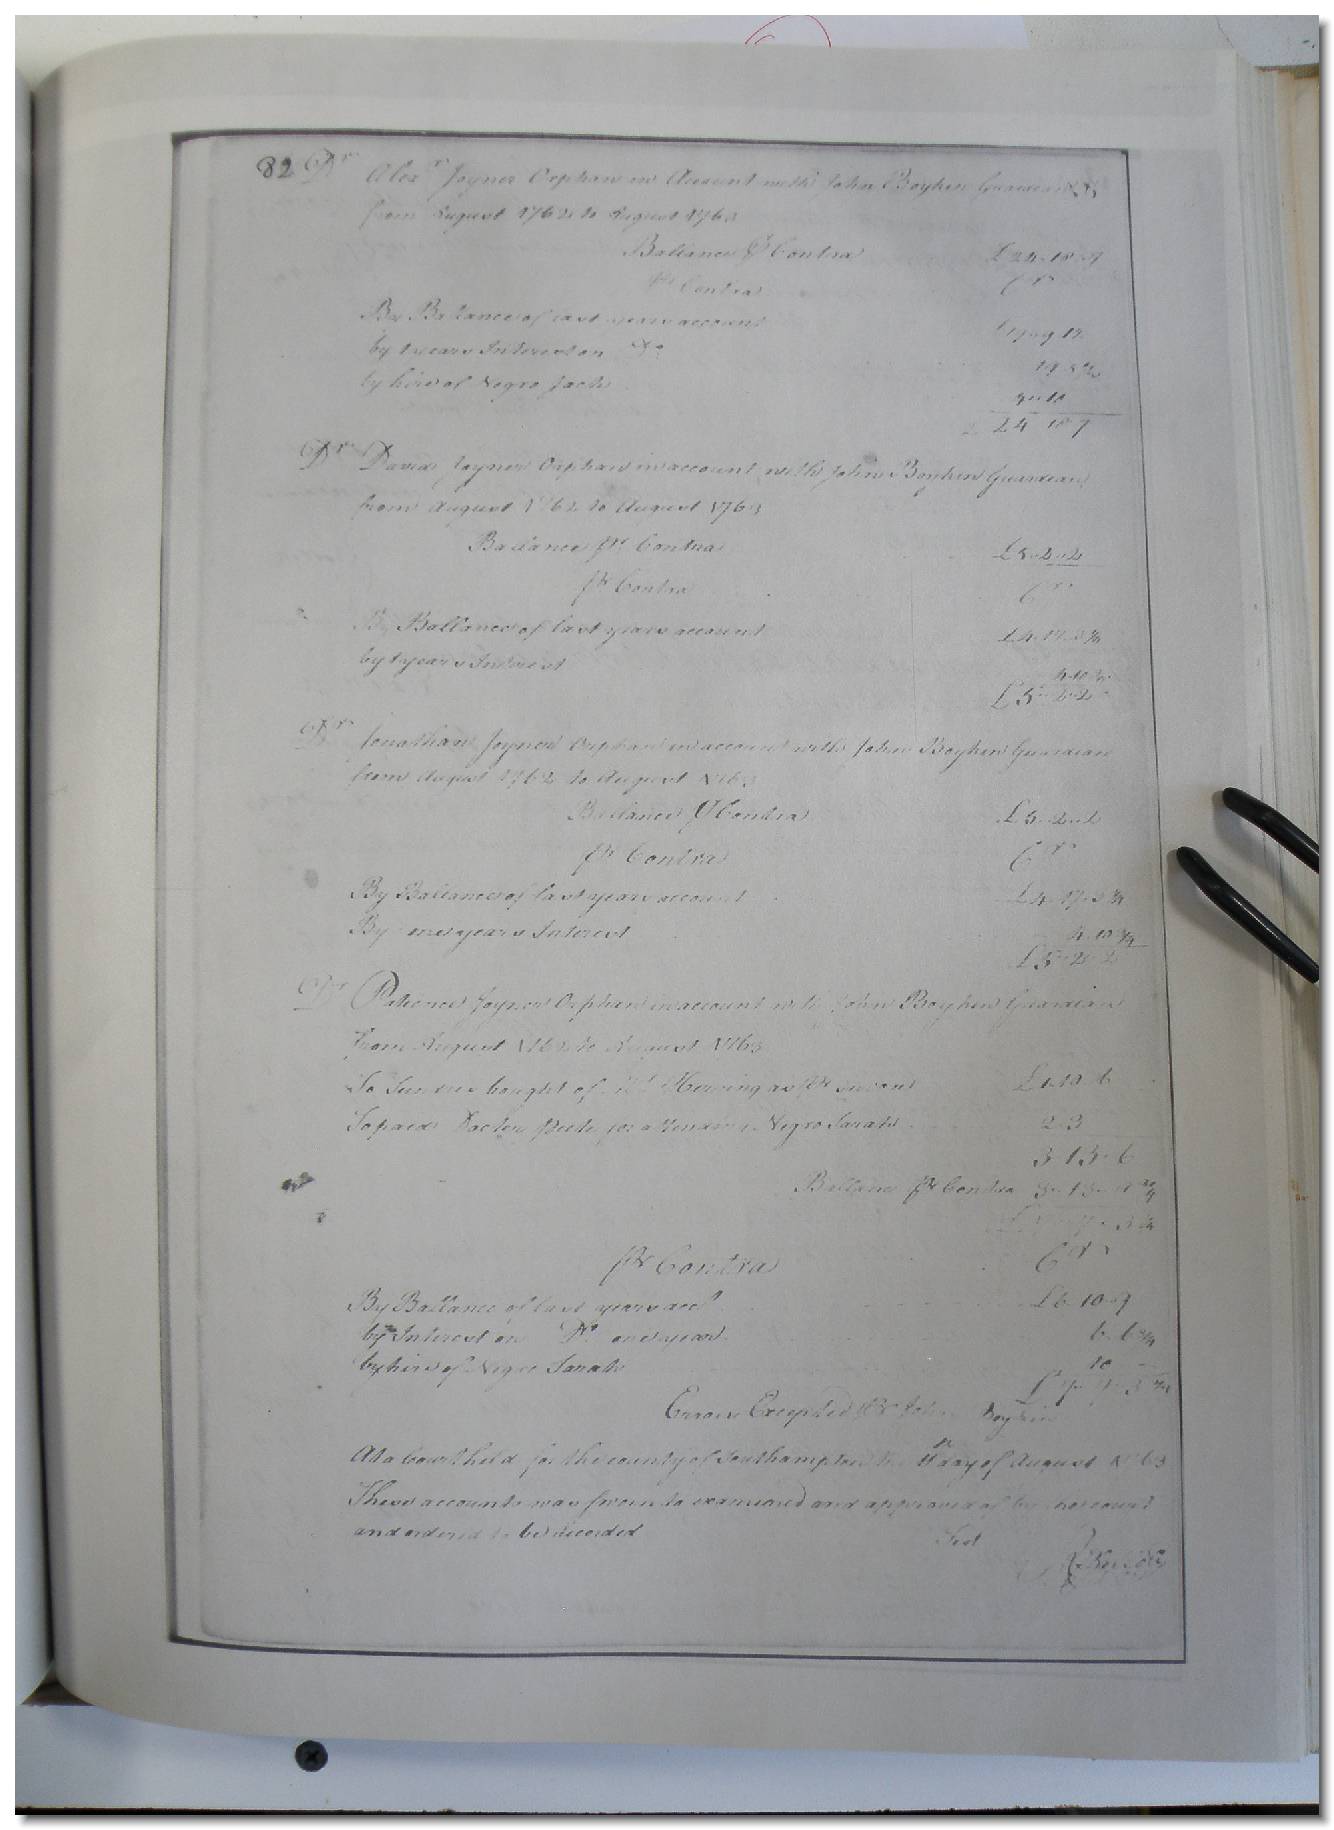 82 Dr Alexr Joyner Orphan in Account with John Boykin Guardian
from August 1762 to August 1763
Ballance Pr Contra £24 18 9
Pr Contra Cr
By Ballance of last years account
by 1 years Interest on Do 19
by hire of Negro Jack
24
Dr David Joyner Orphan in account with John Boykin Guardian
from August 1762 to August 1763
Ballance Pr Contra £5 2 2
Pr Contra Cr
By Ballance of last years account £4 17 3¼
by 1 years Interest 4 10¾
£5 2 2
Dr Jonathan Joyner Orphan in account with John Boykin Guardian
from August 1762 to August 1763
Ballance Pr Contra £5 2 2
Pr Contra Cr
By Ballance of last years account £4 17 3¼
By one years Interest 4 10¾
£5 2 2
Dr Patience Joyner Orphan in account with John Boykin Guardian
from August 1762 to August 1763
To Sundries bought of as Pr £1 10 6
To paid Doctor for attending Negro Sarah 2 3
3 13 6
Ballance Pr Contra 3 13
Pr Contra Cr
By Ballance of last years acct £6 10 9
by Interest on Do one year 6 6¾
by hire of Negro Sarah 10
£7 7 3¾
Errors Excepted Pr John Boykin
At a Court held for the county of Southampton the day of August 1763
These accounts was sworn to examined and approved of by the court
and ordered to be recorded Test